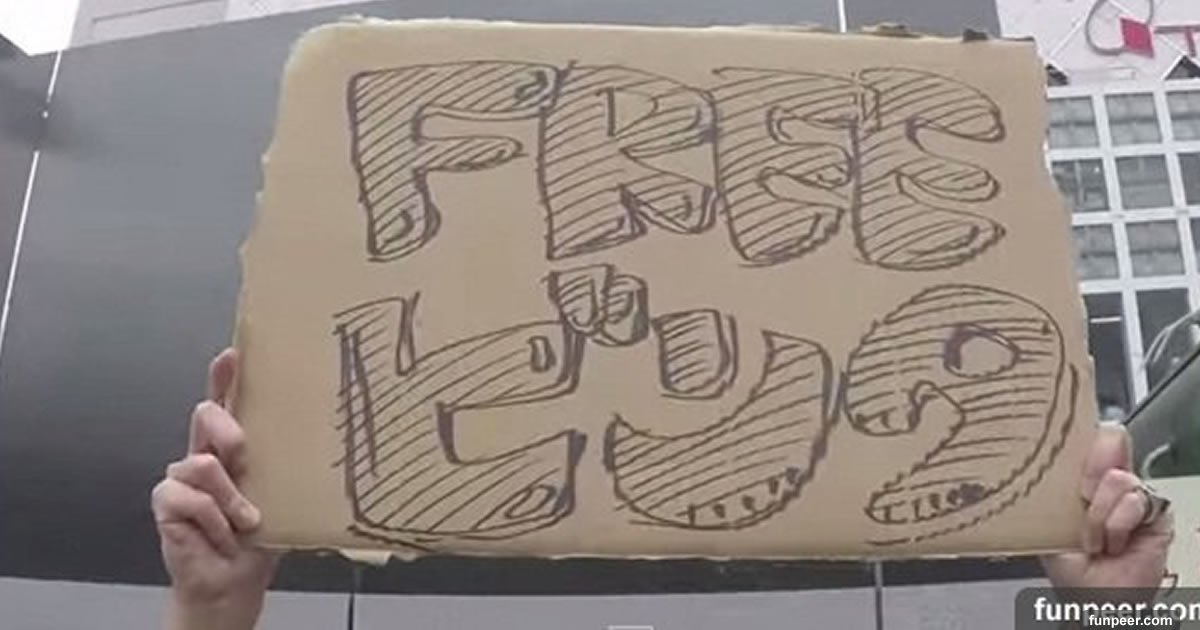 FREE
ビンタ
funpeer.com
funpeer.com